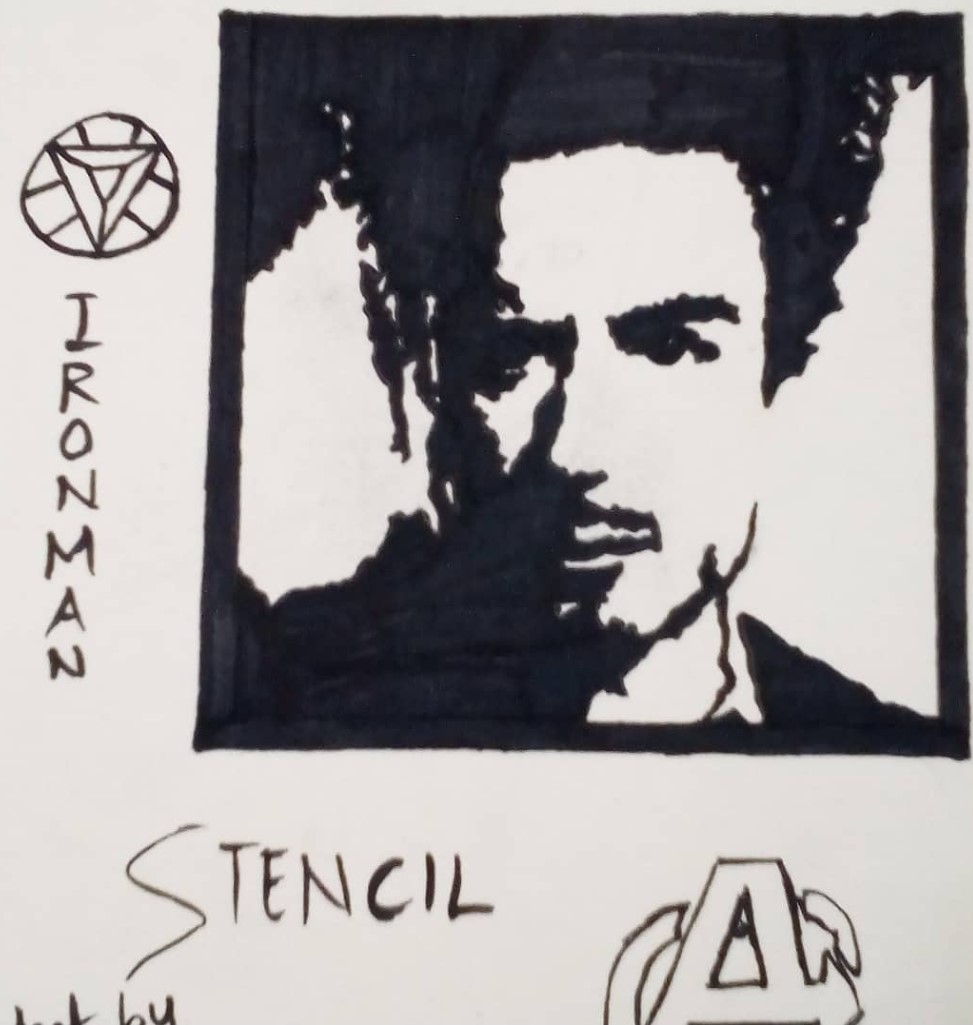 IRONMAN
STENCIL
by